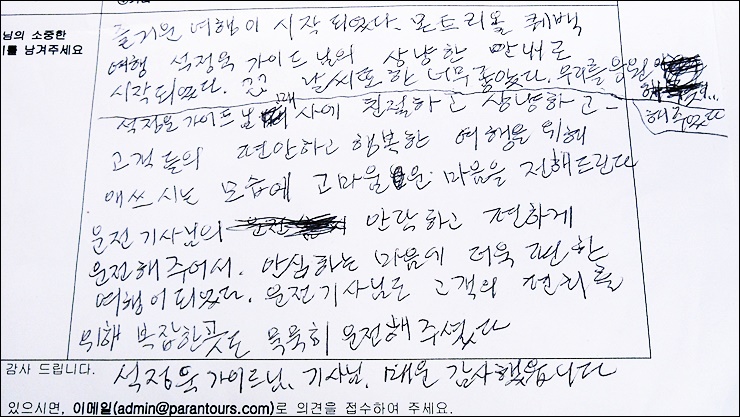 님의 소중한
를 남겨주세요
즐거운 여행이 시작 되었다. 몬트리올 퀘백
여행 석정욱 가이드 님의 상냥한 안내로
시작되었다. 날씨또한 너무 좋았다. 우리를 응원
해 주었다
석정욱 가이드님 매사에 친절하고 상냥하고
고객들의 편안하고 행복한 여행을 위해
애쓰시는 모습에 고마운 마음을 전해드린다
운전기사님의 안락하고 편하게
운전해주어서. 안심하는 마음에 더욱 편한
여행이되었다. 운전기사님도 고객의 편리를
위해 복잡한곳도 묵묵히 운전해 주셨다
감사 드립니다.
석정욱 가이드님. 기사님. 매우 감사했습니다
있으시면, 이메일(admin@parantours.com)로 의견을 접수하여 주세요.